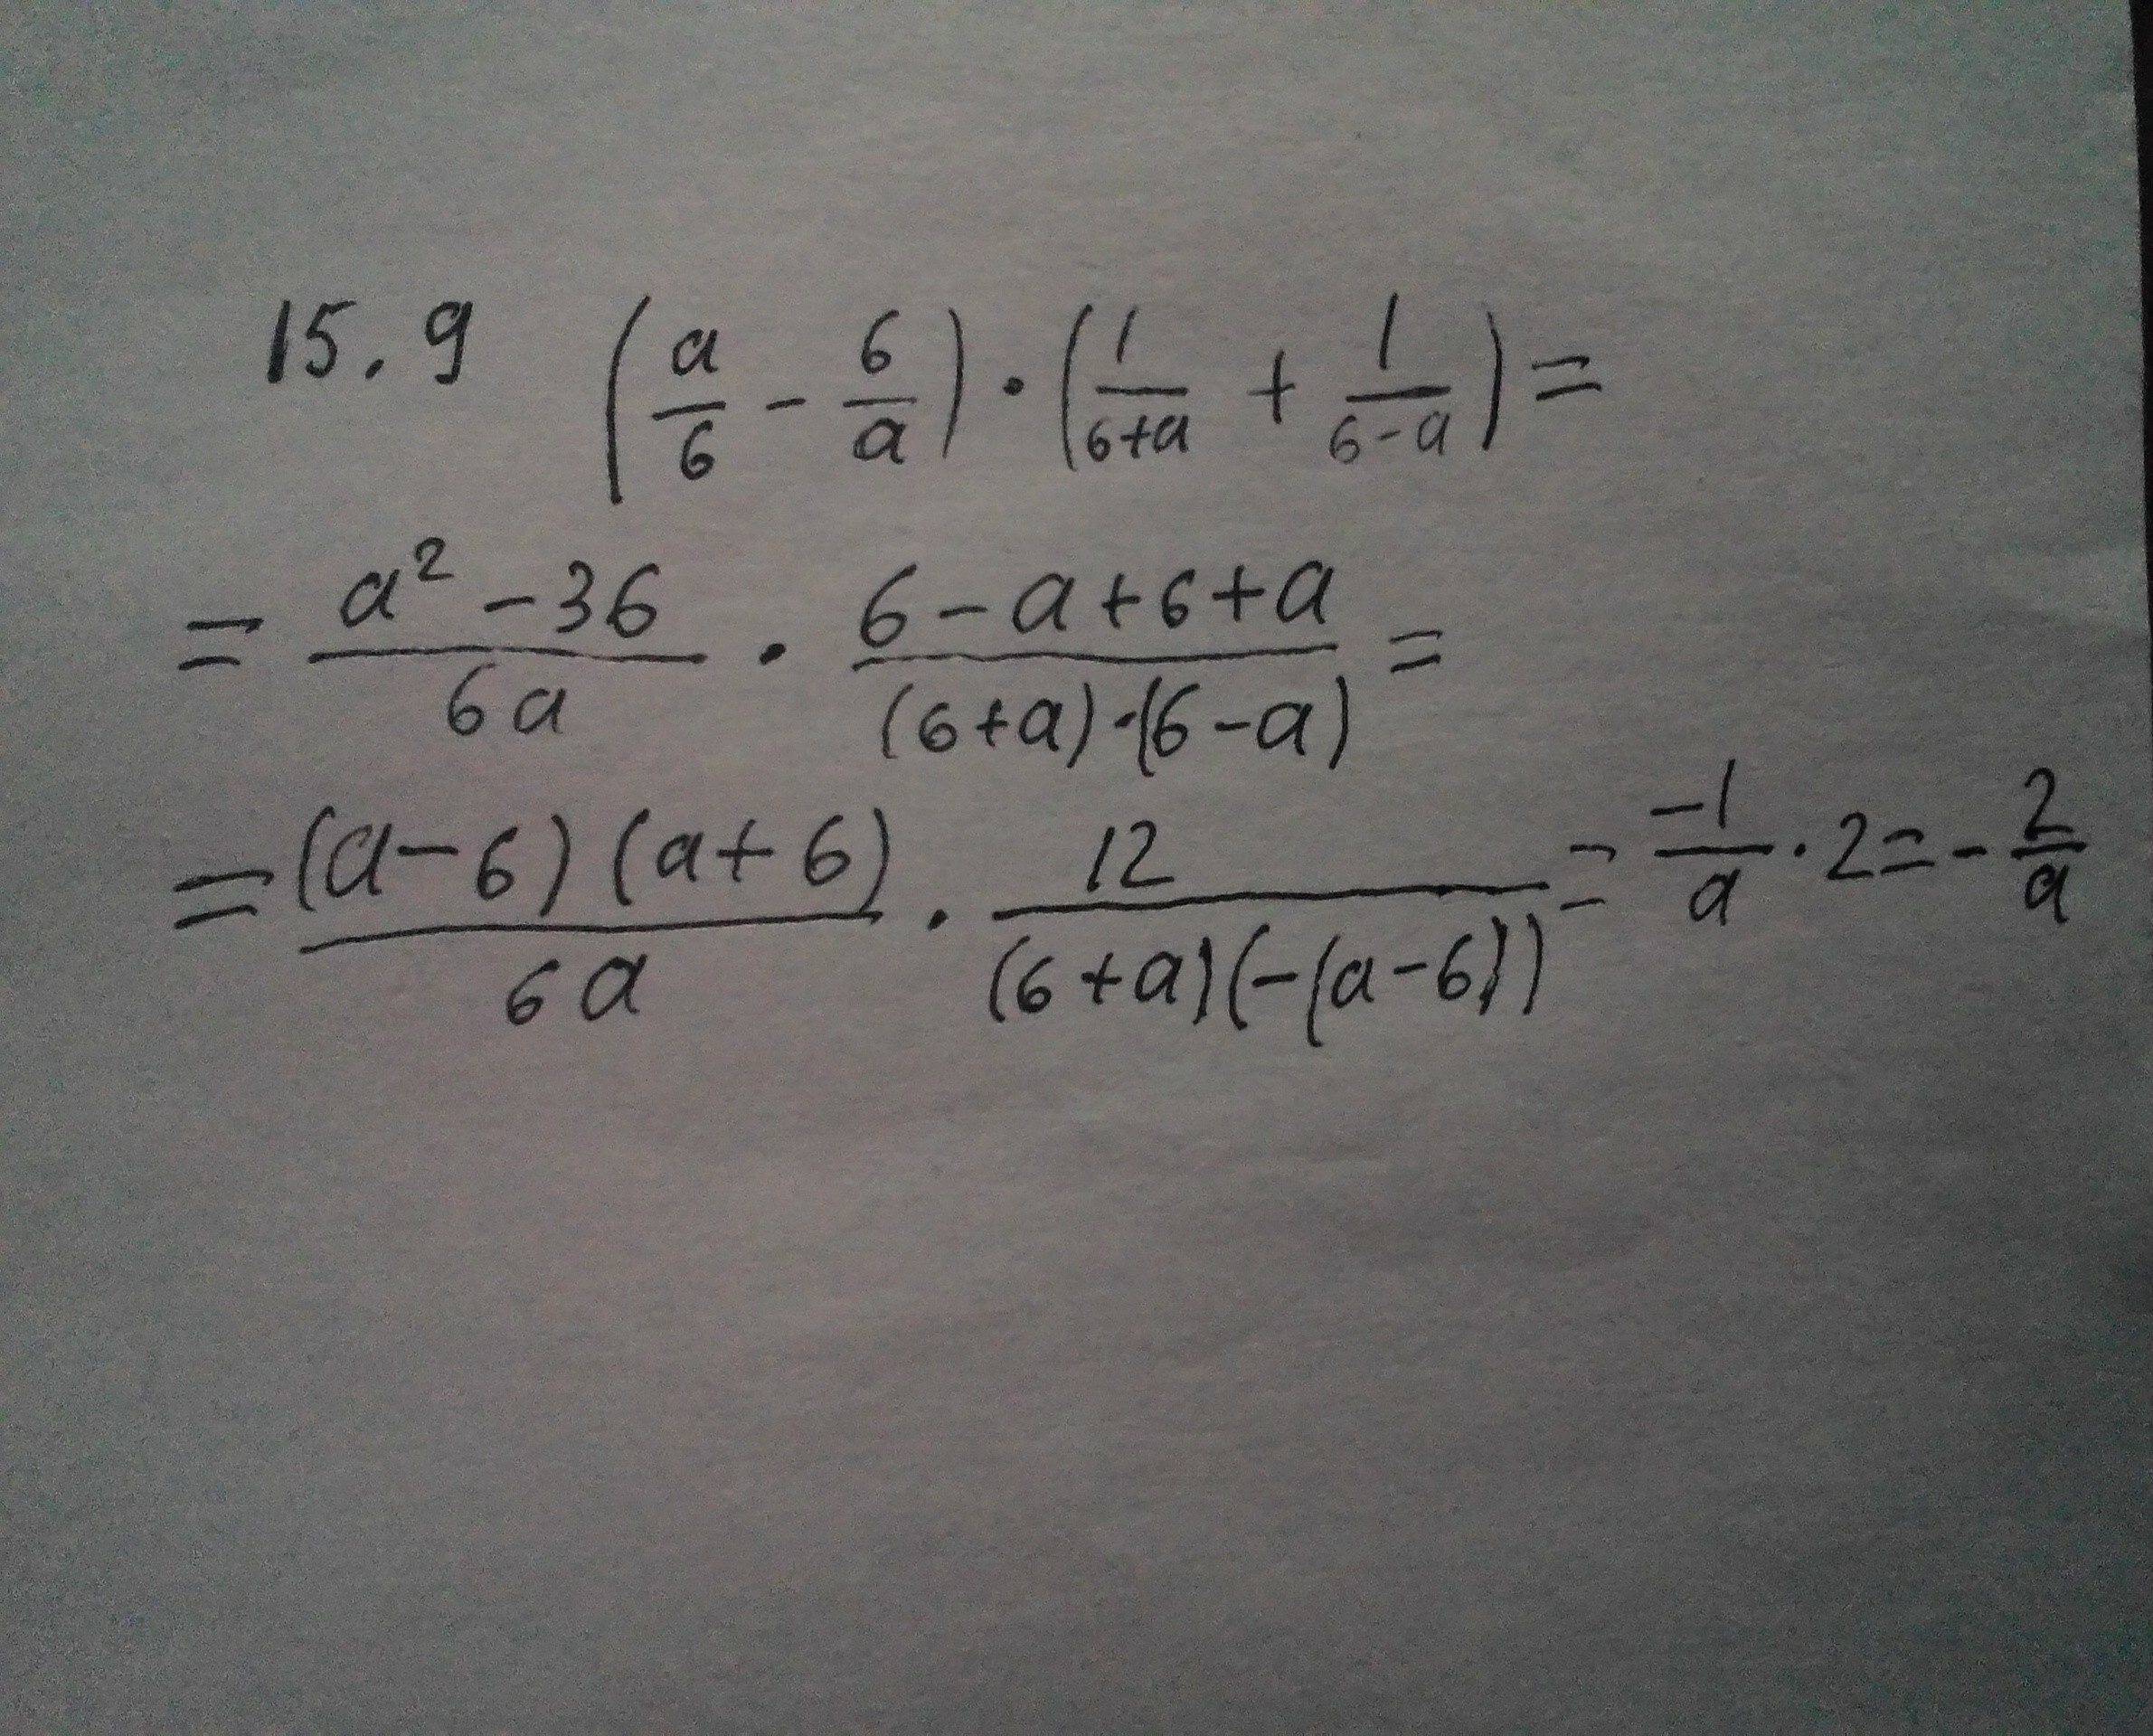 15.9 (a/6 - 6/a) · (1/(6+a) + 1/(6-a)) =
= (a² - 36)/(6a) · (6-a+6+a)/((6+a)·(6-a)) =
= ((a-6)(a+6))/(6a) · 12/((6+a)(-(a-6))) = (-1)/a · 2 = - 2/a